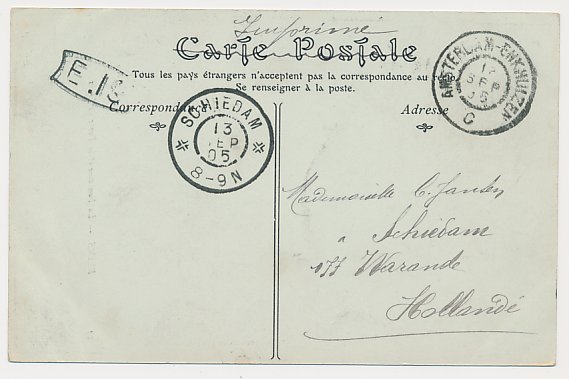 Imprimé
Carte Postale
Tous les pays étrangers n'acceptent pas la correspondance au recto
Se renseigner à la poste.
Correspondance
Adresse
E.18
SCHIEDAM
13
SEP
05
8-9N
AMSTERDAM-ENKHUIZEN
SEP
05
C
Mademoiselle C. Jansen
à Schiedam
177 Warande
Hollande